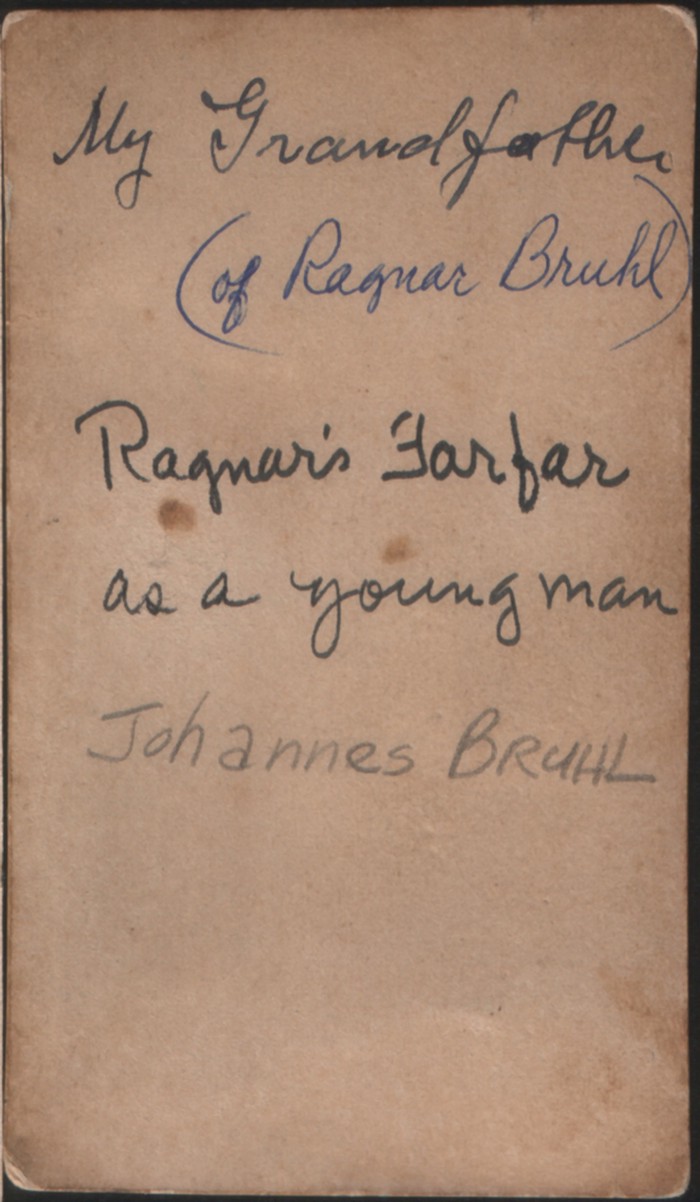 My Grandfather
(of Ragnar Bruhl)
Ragnar's Farfar
as a young man
Johannes BRUHL